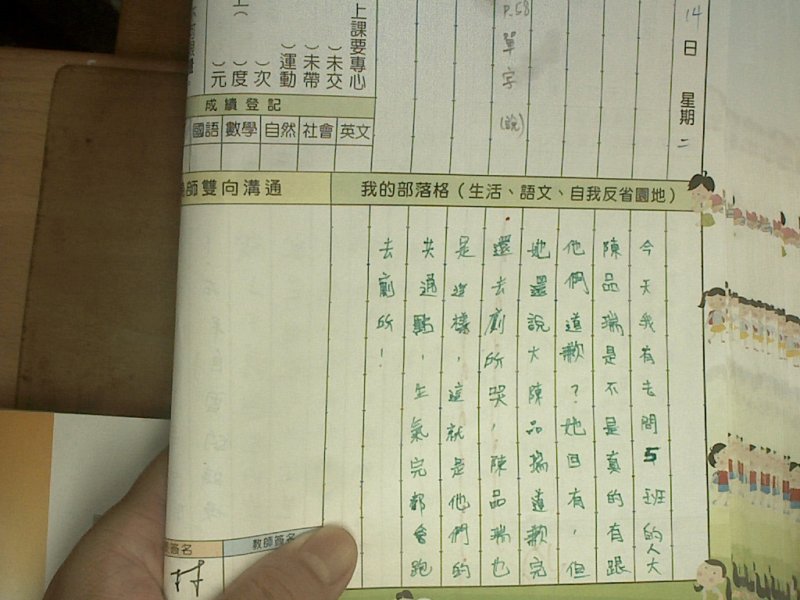 14日 星期二
P.58單字(說)
上課要專心
)未交
)未帶
)運動
)次
)度
)元
成績登記
國語 數學 自然 社會 英文
師雙向溝通
我的部落格(生活、語文、自我反省園地)
今天我有去問5班的人大
陳品瑞是不是真的有跟
他們道歉?她回有,但
她還說大陳品瑞道歉完
還去廁所哭,陳品瑞也
是這樣,這就是他們的
共通點,生氣完都會跑
去廁所!
簽名
教師簽名